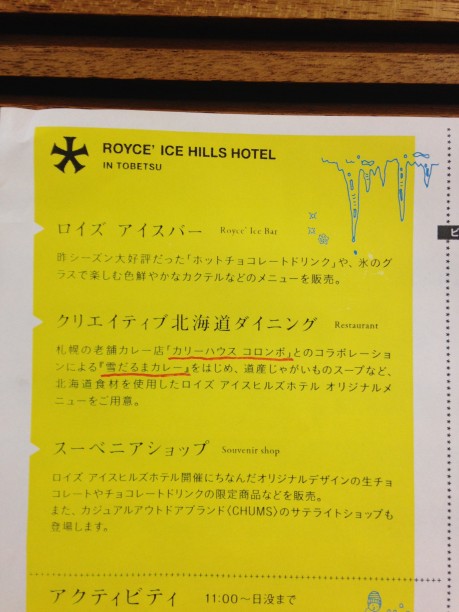 ROYCE' ICE HILLS HOTEL
IN TOBETSU
ロイズ アイスバー Royce' Ice Bar
昨シーズン大好評だった「ホットチョコレートドリンク」や、氷のグ
ラスで楽しむ色鮮やかなカクテルなどのメニューを販売。
クリエイティブ北海道ダイニング Restaurant
札幌の老舗カレー店「カリーハウス コロンボ」とのコラボレーショ
ンによる『雪だるまカレー』をはじめ、道産じゃがいものスープなど、
北海道食材を使用したロイズ アイスヒルズホテル オリジナルメ
ニューをご用意。
スーベニアショップ Souvenir shop
ロイズ アイスヒルズホテル開催にちなんだオリジナルデザインの生チョ
コレートやチョコレートドリンクの限定商品などを販売。
また、カジュアルアウトドアブランド〈CHUMS〉のサテライトショップも
登場します。
アクティビティ 11:00〜日没まで